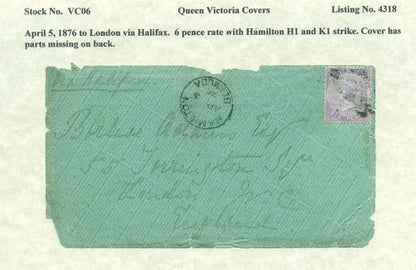 Stock No. VC06 Queen Victoria Covers Listing No. 4318
April 5, 1876 to London via Halifax. 6 pence rate with Hamilton H1 and K1 strike. Cover has
parts missing on back.
via Halifax
HAMILTON
BERMUDA
Esq
55 Torrington Sqre
London W.C.
England